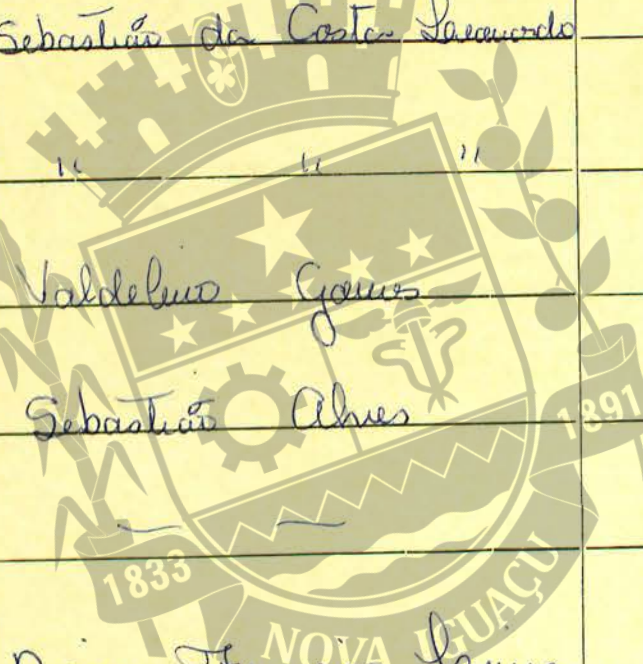 Sebastião da Costa
" " "
Valdelino Gomes
Sebastião Alves
— —
1891
1833
NOVA IGUAÇU